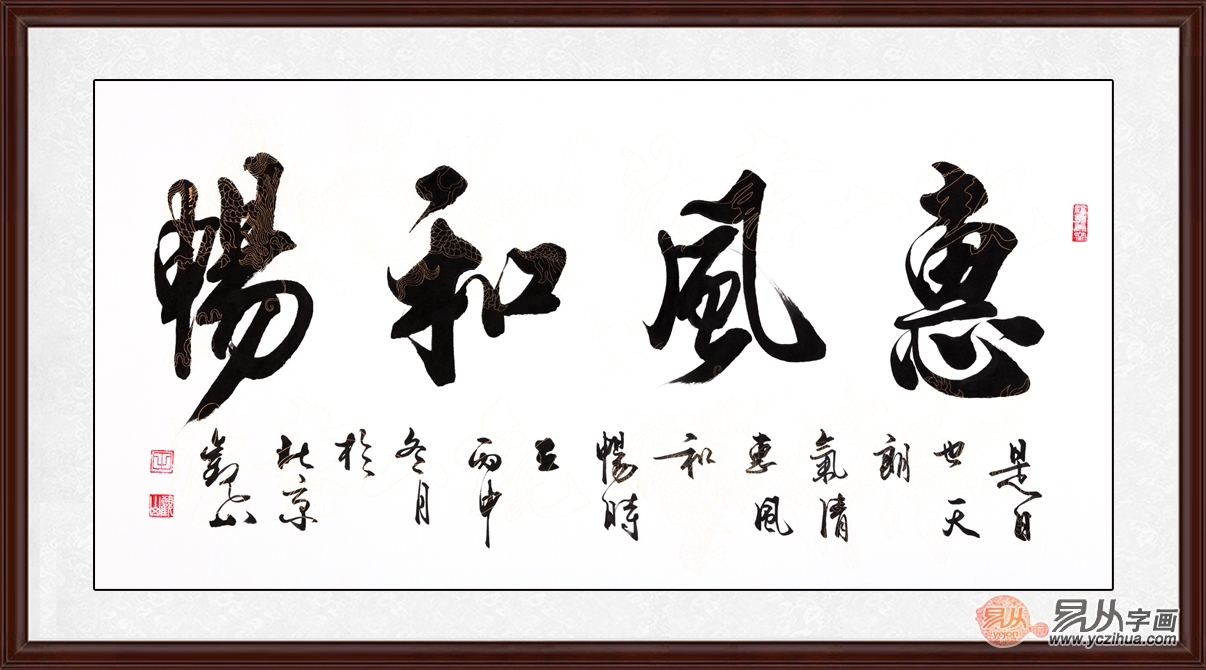 惠風和暢
是日
也天
朗
氣清
惠風
和
暢時
在
丙申
冬月
於
北京
觀山
易从
yejon
易从字画
www.yczihua.com